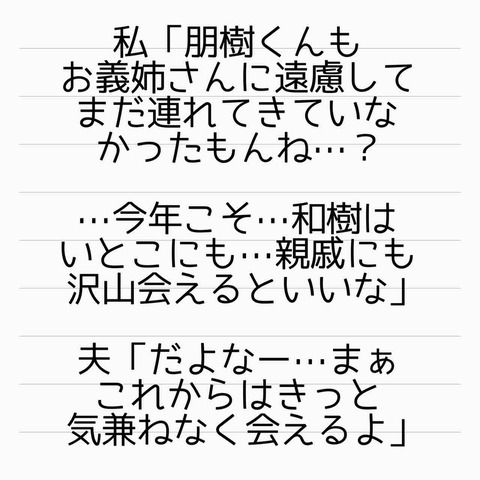 私「朋樹くんも
お義姉さんに遠慮して
まだ連れてきていな
かったもんね…？
…今年こそ…和樹は
いとこにも…親戚にも
沢山会えるといいな」
夫「だよなー…まぁ
これからはきっと
気兼ねなく会えるよ」